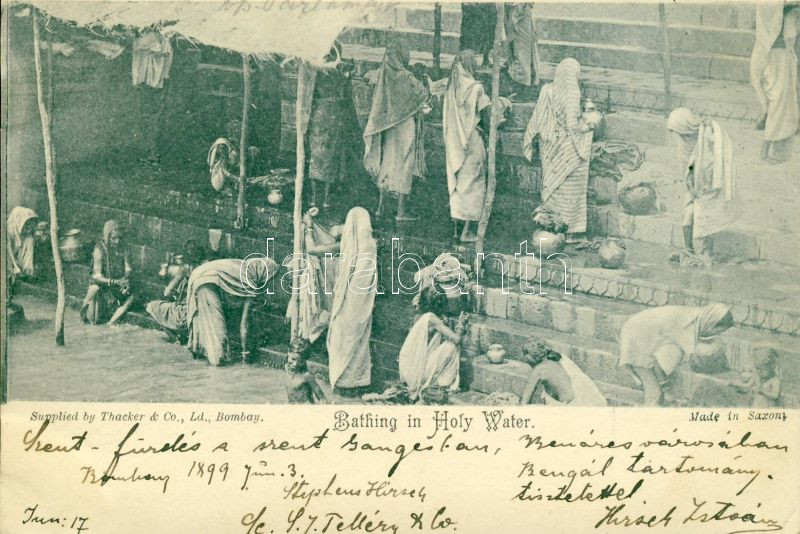 darabanth
Supplied by Thacker & Co., Ld., Bombay.
Bathing in Holy Water.
Made in Saxony
Szent-fürdés a szent Gangesban, Benáres városában
Bombay 1899 Jún. 3.
Bengál tartomány.
Stephens Hirsch
tisztelettel
Jun: 17
c/c. S. J. Telléry & Co.
Hirsch István